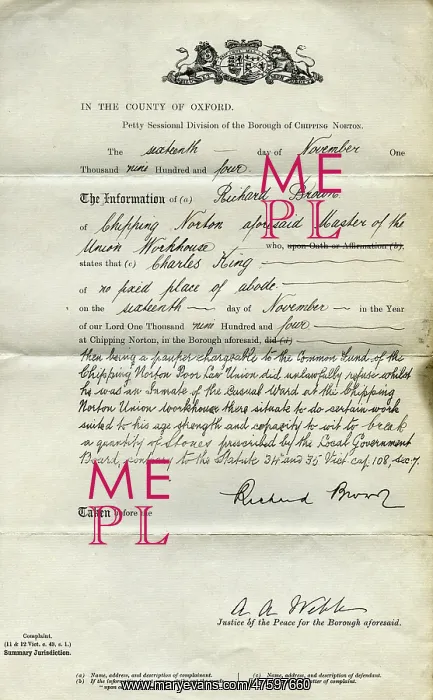 IN THE COUNTY OF OXFORD.
Petty Sessional Division of the Borough of CHIPPING NORTON.
The sixteenth day of November One
Thousand nine Hundred and four
The Information of (a) Richard Brown
of Chipping Norton aforesaid Master of the
Union Workhouse who, upon Oath or Affirmation (b),
states that (c) Charles King
of no fixed place of abode
on the sixteenth day of November in the Year
of our Lord One Thousand nine Hundred and four
at Chipping Norton, in the Borough aforesaid, did (d)
then being a pauper chargeable to the Common Fund of the
Chipping Norton Poor Law Union did unlawfully refuse whilst
he was an Inmate of the Casual Ward at the Chipping
Norton Union workhouse there situate to do certain work
suited to his age strength and capacity to wit to break
a quantity of stones prescribed by the Local Government
Board, contrary to the Statute 34 and 35 Vict cap. 108, sec. 7.
Richard Brown
Taken before me
A A Webb
Justice of the Peace for the Borough aforesaid.
Complaint.
(11 & 12 Vict. c. 43, s. 1.)
Summary Jurisdiction.
(a) Name, address, and description of complainant.
(c) Name, address, and description of defendant.
(b) If the
"upon
matter of complaint.
ME
PL
ME
PL
www.maryevans.com/47597660